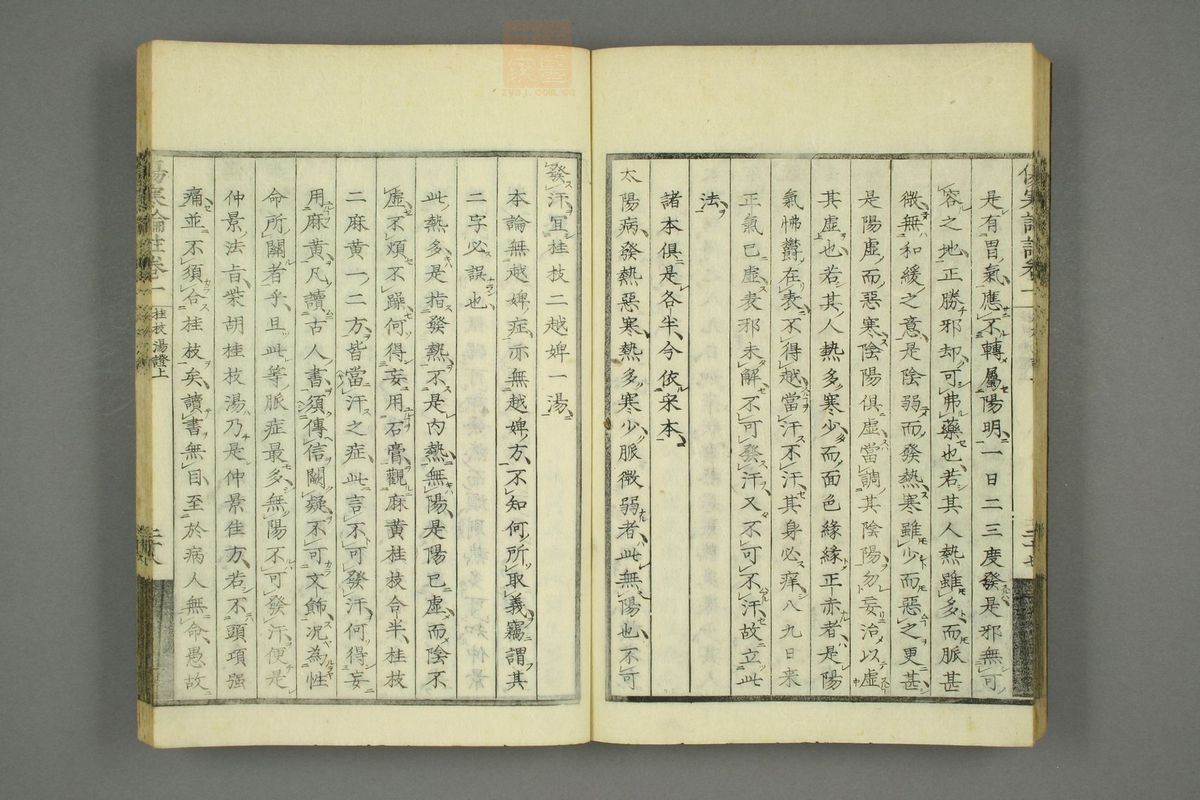 是有胃氣應不轉屬陽明一日二三度發是邪無可
容之地正勝邪却可弗藥也若其人熱雖多而脈甚
微無和緩之意是陰弱而發熱寒雖少而惡之更甚
是陽虛而惡寒陰陽俱虛當調其陰陽勿妄治以虛
其虛也若其人熱多寒少而面色緣緣正赤者是陽
氣怫欝在表不得越當汗不汗其身必痒八九日來
正氣已虛表邪未解不可發汗又不可不汗故立此
法
諸本俱是各半今依宋本
太陽病發熱惡寒熱多寒少脈微弱者此無陽也不可
發汗冝桂枝二越婢一湯
本論無越婢症亦無越婢方不知何所取義竊謂其
二字必誤也
此熱多是指發熱不是內熱無陽是陽已虛而陰不
虛不煩不躁何得妄用石膏觀麻黃桂枝合半桂枝
二麻黃一二方皆當汗之症此言不可發汗何得妄
用麻黃凡讀古人書須傳信闕疑不可文飾况為性
命所關者乎且此等脈症最多無陽不可發汗便是
仲景法旨柴胡桂枝湯乃是仲景佳方若不頭項强
痛並不須合桂枝矣讀書無目至於病人無命愚故
傷寒論註卷一
桂枝湯證上
二十八